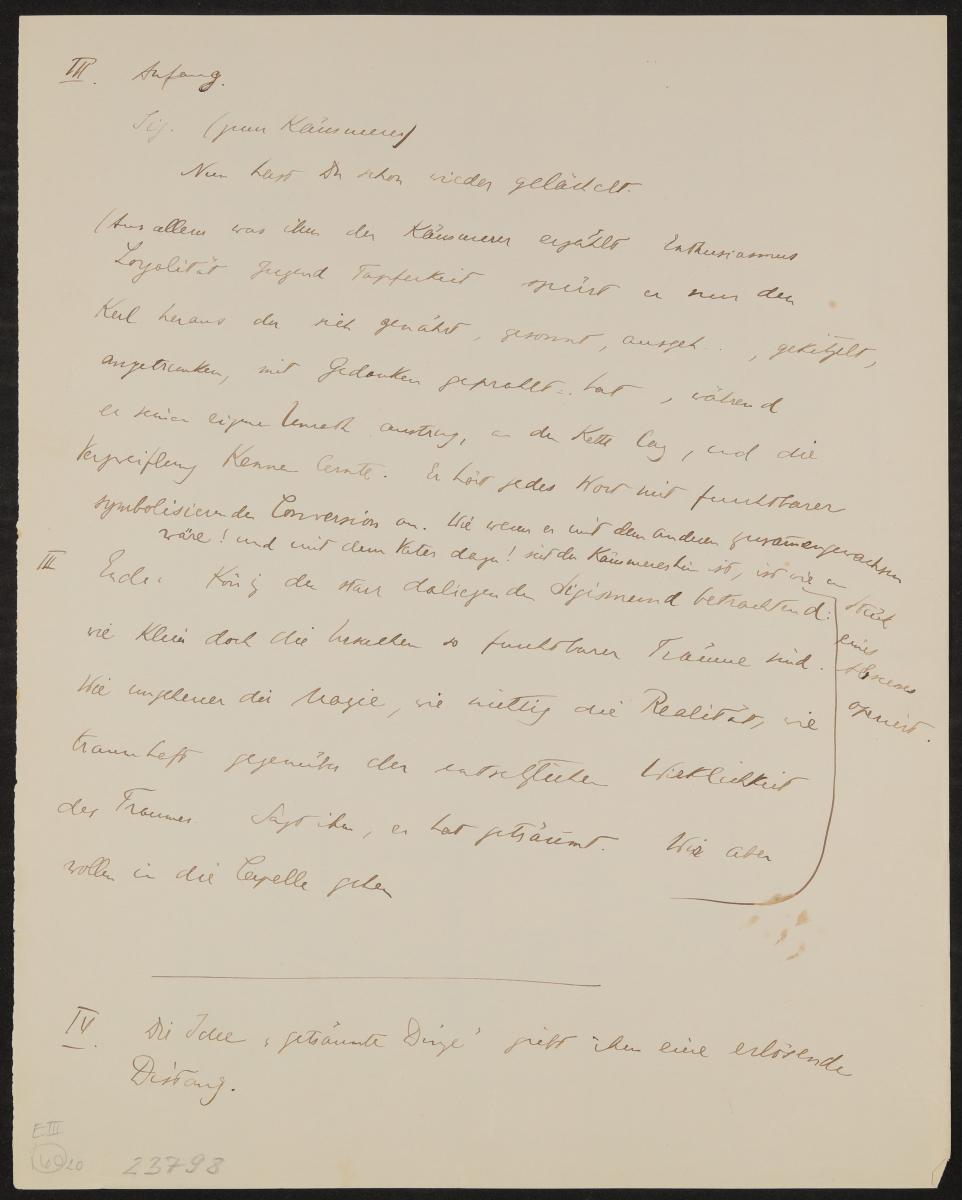 III. Anfang.
Sig. (zum Kämmerer)
Nun hast Du schon wieder gelächelt.
(Aus allem was ihm der Kämmerer erzählt Enthusiasmus
Loyalität Jugend Tapferkeit spürt er nur den
Kerl heraus der sich genährt, gesonnt, ausgeh.., gekitzelt,
angetrunken, mit Gedanken geprahlt.. hat, während
er seinen eigenen Unrath austrug, an der Kette lag, und die
Verzweiflung kennen lernte. Er hört jedes Wort mit furchtbarer
symbolisierender Conversion an. Wie wenn er mit dem anderen zusamengewachsen
wäre! und mit dem Vater dazu! mit der Kämmererstin ist, ist wie ein
Stück
eines
operiert.
III Ende: König den starr daliegenden Sigismund betrachtend:
wie klein doch die Ursachen so furchtbarer Träume sind.
Wie ungeheuer die Magie, wie nichtig die Realität, wie
traumhaft gegenüber der entsetzlichen Wirklichkeit
des Traumes. Sagt ihm, er hat geträumt. Wir aber
wollen in die Capelle gehen
IV. Die Idee "geträumte Dinge" giebt ihm eine erlösende
Distanz.
E III
20
23798